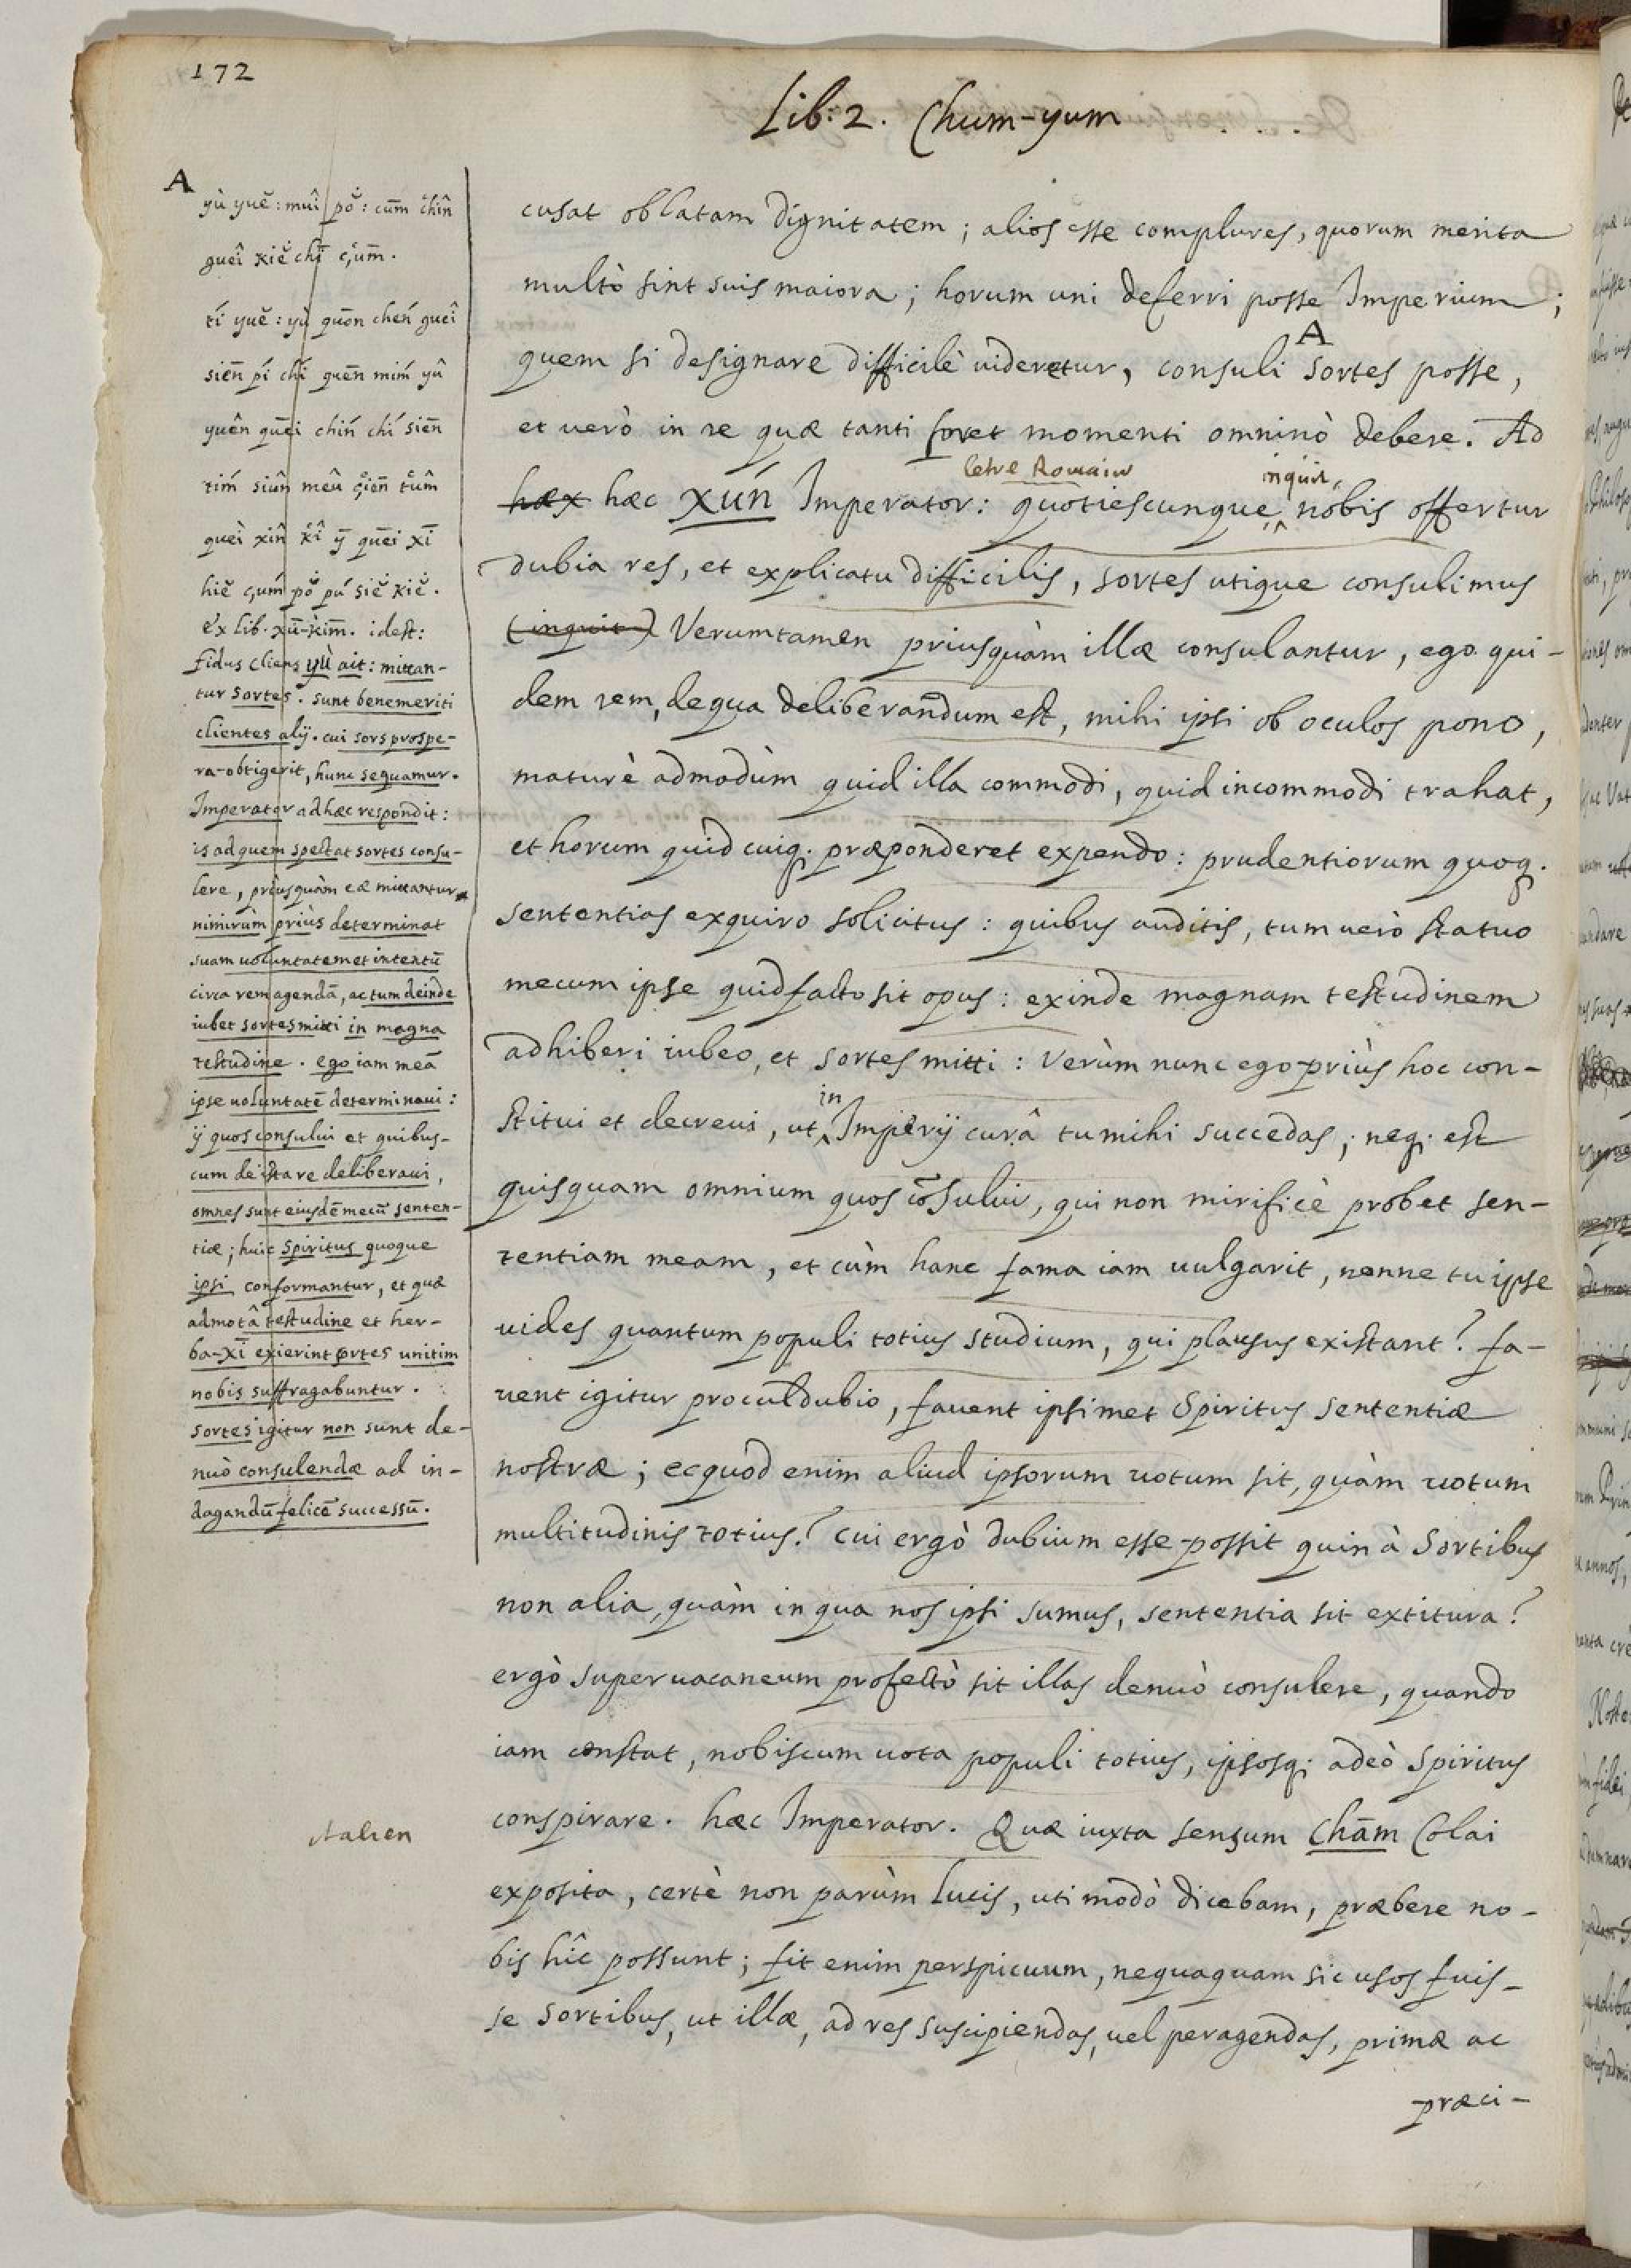 172
Lib: 2. Chum-yum
A
yù yuĕ: mûi pŏ: cūm chîn
guêi kiĕ chī cūm.
tí yuĕ: yù quōn chén guêi
siēn pí chí quēn mím yû
yuên quēi chín chí siēn
tím siûn mêu çiēn tûm
quèi xîn kî ȳ quēi xī
hiĕ çúm pŏ pú siĕ kiĕ.
ex lib. xū-kīm. idest:
fidus cliens yù ait: mittan-
tur sortes. sunt benemeriti
clientes alij. cui sors prospe-
ra obtigerit, hunc sequamur.
Imperator ad hæc respondit:
is ad quem spectat sortes consu-
lere, priusquàm eæ mittantur
nimirùm priùs determinat
suam uoluntatem et intentū
circa rem agendā, ac tum deinde
iubet sortes mitti in magna
testudine. ego iam meā
ipse uoluntatē determinaui:
ij quos consului et quibus-
cum de ista re deliberaui,
omnes sunt eiusdē mecū senten-
tiæ; huic spiritus quoque
ipsi conformantur, et quæ
admotâ testudine et her-
ba-xī exierint sortes unitim
nobis suffragabuntur.
sortes igitur non sunt de-
nuò consulendæ ad in-
dagandū felicē successū.
cusat oblatam dignitatem; alios esse complures, quorum merita
multò sint suis maiora; horum uni deferri posse Imperium;
quem si designare difficilè uideretur, consuli A sortes posse,
et uerò in re quæ tanti foret momenti omninò debere. Ad
letre Romain inquit,
hæx hæc XÚN Imperator: quotiescunque nobis offertur
dubia res, et explicatu difficilis, sortes utique consulimus
(inquit) Verumtamen priusquàm illæ consulantur, ego qui-
dem rem, de qua deliberandum est, mihi ipsi ob oculos pono,
maturè admodùm quid illa commodi, quid incommodi trahat,
et horum quid cuiq; præponderet expendo: prudentiorum quoq;
sententias exquiro solicitus: quibus auditis, tum uerò statuo
mecum ipse quid facto sit opus: exinde magnam testudinem
adhiberi iubeo, et sortes mitti: Verùm nunc ego priùs hoc con-
in
stitui et decreui, ut Imperij curâ tu mihi succedas; neq; est
quisquam omnium quos cōsului, qui non mirificè probet sen-
tentiam meam, et cùm hanc fama iam uulgarit, nonne tu ipse
uides quantum populi totius studium, qui plausus existant? fa-
uent igitur proculdubio, fauent ipsimet Spiritus sententiæ
nostræ; ecquod enim aliud ipsorum uotum sit, quàm uotum
multitudinis totius? cui ergò dubium esse possit quin à Sortibus
non alia, quàm in qua nos ipsi sumus, sententia sit extitura?
ergò superuacaneum profectò sit illas denuò consulere, quando
iam constat, nobiscum uota populi totius, ipsosq; adeò Spiritus
conspirare. hæc Imperator. Quæ iuxta sensum Chām Colai
italien
exposita, certè non parùm lucis, uti modò dicebam, præbere no-
bis hîc possunt; fit enim perspicuum, nequaquam sic usos fuis-
se sortibus, ut illæ, ad res suscipiendas, uel peragendas, primæ ac
præci-